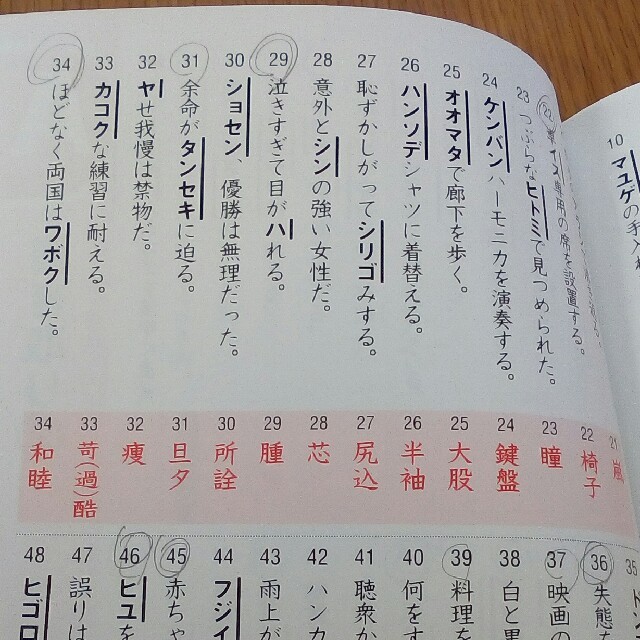 22 車イス専用の席を設置する。
23 つぶらなヒトミで見つめられた。
24 ケンバンハーモニカを演奏する。
25 オオマタで廊下を歩く。
26 ハンソデシャツに着替える。
27 恥ずかしがってシリゴみする。
28 意外とシンの強い女性だ。
29 泣きすぎて目がハれる。
30 ショセン、優勝は無理だった。
31 余命がタンセキに迫る。
32 ヤせ我慢は禁物だ。
33 カコクな練習に耐える。
34 ほどなく両国はワボクした。
10 マユゲの手入れ
21 嵐
22 椅子
23 瞳
24 鍵盤
25 大股
26 半袖
27 尻込
28 芯
29 腫
30 所詮
31 旦夕
32 痩
33 苛(過)酷
34 和睦
35
36 失態を
37 映画の
38 白と黒
39 料理を
40 何をす
41 聴衆か
42 ハンカ
43 雨上が
44 フジイ
45 赤ちゃ
46 ヒユを
47 誤りは
48 ヒゴロ